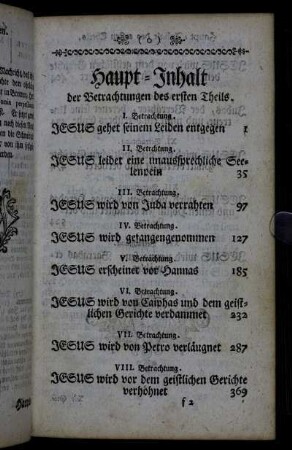 Haupt-Inhalt
der Betrachtungen des ersten Theils.
I. Betrachtung.
JESUS gehet seinem Leiden entgegen 1
II. Betrchtung.
JESUS leidet eine unaussprechliche See-
lenpein 35
III. Betrachtung.
JESUS wird von Juda verrahten 97
IV. Betrachtung.
JESUS wird gefangengenommen 127
V. Betrachtung.
JESUS erscheinet vor Hannas 185
VI. Betrachtung.
JESUS wird von Caiphas und dem geist-
lichen Gerichte verdammet 232
VII. Betrachtung.
JESUS wird von Petro verläugnet 287
VIII. Betrachtung.
JESUS wird vor dem geistlichen Gerichte
verhöhnet 369
f 2